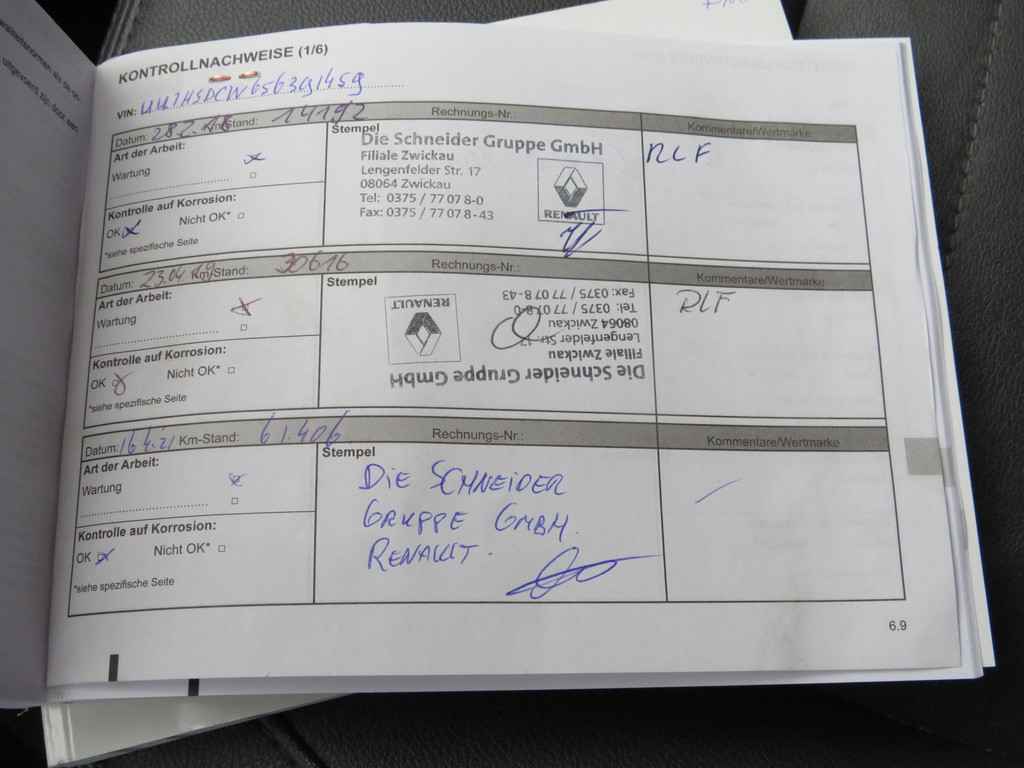 KONTROLLNACHWEISE (1/6)
VIN: UU1HSDCW656391459
Datum: 28.2. Km-Stand: 14192 Rechnungs-Nr.: Kommentare/Wertmarke
Art der Arbeit:
Wartung
Kontrolle auf Korrosion:
OK Nicht OK*
*siehe spezifische Seite
Stempel
Die Schneider Gruppe GmbH
Filiale Zwickau
Lengenfelder Str. 17
08064 Zwickau
Tel: 0375 / 77 07 8-0
Fax: 0375 / 77 07 8-43
RENAULT
RLF
Datum: 23.04.19 Km/Stand: 30616 Rechnungs-Nr.: Kommentare/Wertmarke
Art der Arbeit:
Wartung
Kontrolle auf Korrosion:
OK Nicht OK*
*siehe spezifische Seite
Stempel
Die Schneider Gruppe GmbH
Filiale Zwickau
Lengenfelder Str. 17
08064 Zwickau
Tel: 0375 / 77 07 8-0
Fax: 0375 / 77 07 8-43
RENAULT
RLF
Datum: 16.4.21 Km-Stand: 61.406 Rechnungs-Nr.: Kommentare/Wertmarke
Art der Arbeit:
Wartung
Kontrolle auf Korrosion:
OK Nicht OK*
*siehe spezifische Seite
Stempel
DIE SCHNEIDER
GRUPPE GMBH.
RENAULT.
6.9